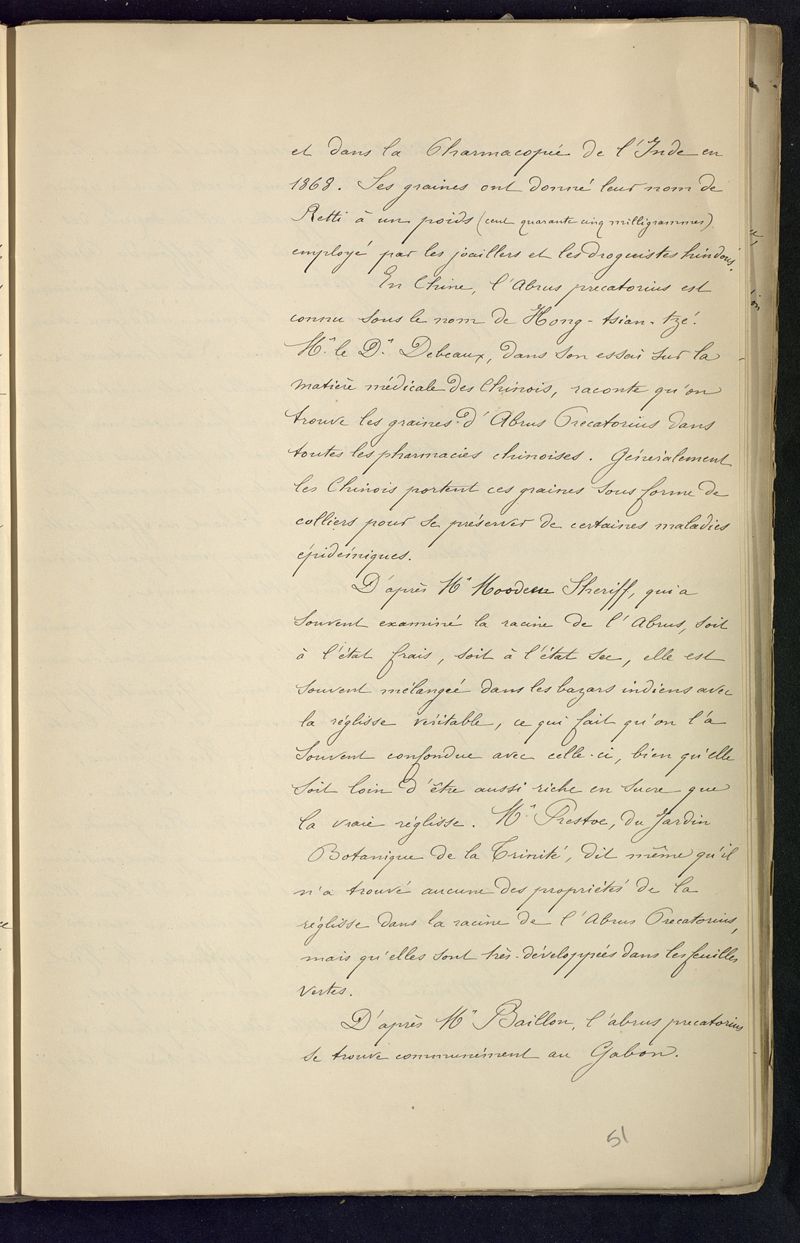 et dans la Pharmacopée de l'Inde en
1868. Ses graines ont donné leur nom de
Retti à un poids (cent quarante cinq milligrammes)
employé par les joailliers et les droguistes hindous.
En Chine, l'Abrus precatorius est
connu sous le nom de Hong-tsian-tzé.
Mr. le Dr. Debeaux, dans son essai sur la
matière médicale des Chinois, raconte qu'on
trouve les graines d'Abrus Precatorius dans
toutes les pharmacies chinoises. Généralement
les Chinois portent ces graines sous forme de
colliers pour se préserver de certaines maladies
épidémiques.
D'après Mr Moodeen Sheriff, qui a
souvent examiné la racine de l'Abrus, soit
à l'état frais, soit à l'état sec, elle est
souvent mélangée dans les bazars indiens avec
la réglisse véritable, ce qui fait qu'on l'a
souvent confondue avec celle-ci, bien qu'elle
soit loin d'être aussi riche en sucre que
la vraie réglisse. Mr. Prestoe, du Jardin
Botanique de la Trinité, dit même qu'il
n'a trouvé aucune des propriétés de la
réglisse dans la racine de l'Abrus Precatorius,
mais qu'elles sont très-développées dans les feuilles
vertes.
D'après Mr Baillon, l'abrus precatorius
se trouve communément au Gabon.
51